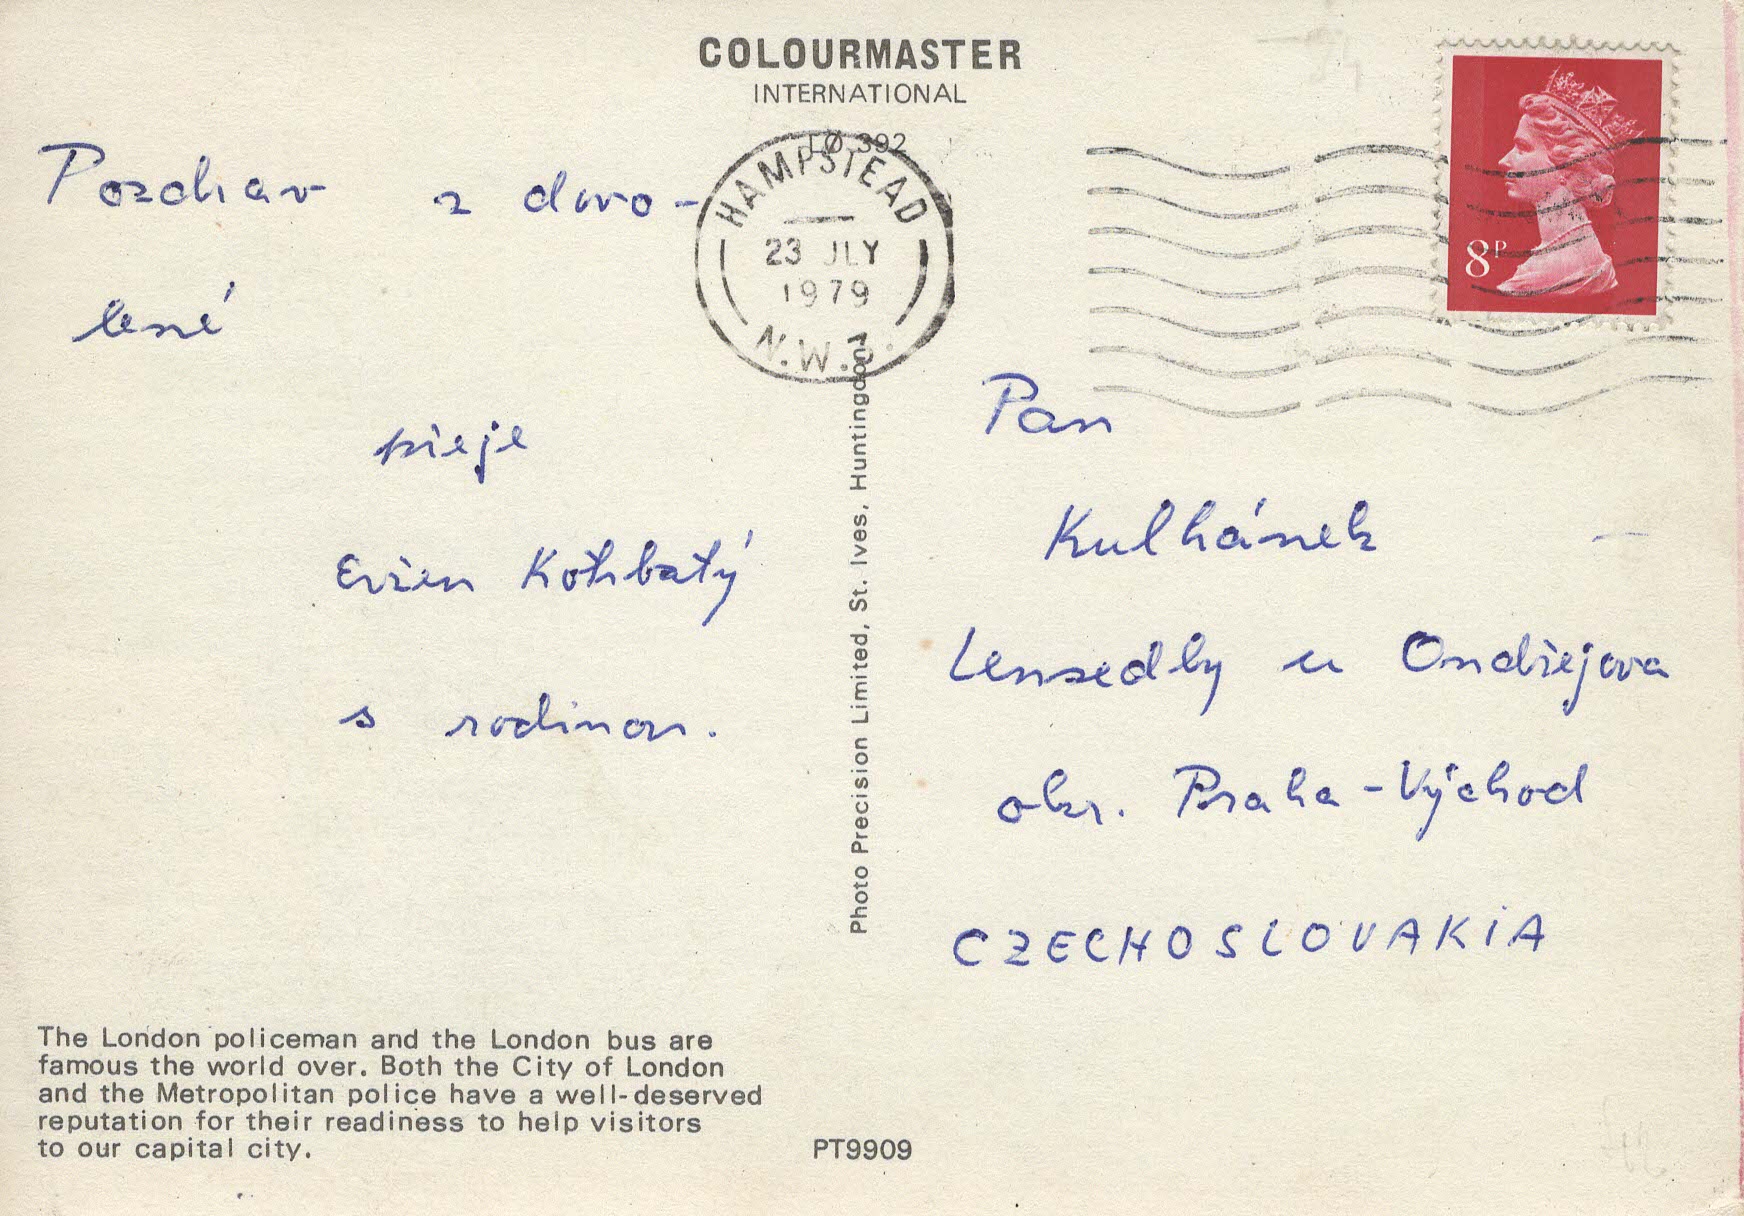 COLOURMASTER
INTERNATIONAL
LØ 392
HAMPSTEAD
23 JLY
1979
N.W.3.
8P
Pozdrav z dovo-
lené
přeje
Evžen Kohbatý
s rodinou.
Pan
Kulhánek
Lensedly u Ondřejova
okr. Praha-Východ
CZECHOSLOVAKIA
Photo Precision Limited, St. Ives, Huntingdon
The London policeman and the London bus are
famous the world over. Both the City of London
and the Metropolitan police have a well-deserved
reputation for their readiness to help visitors
to our capital city.
PT9909